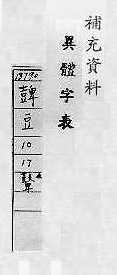 補充資料
異體字表
豆
10
17